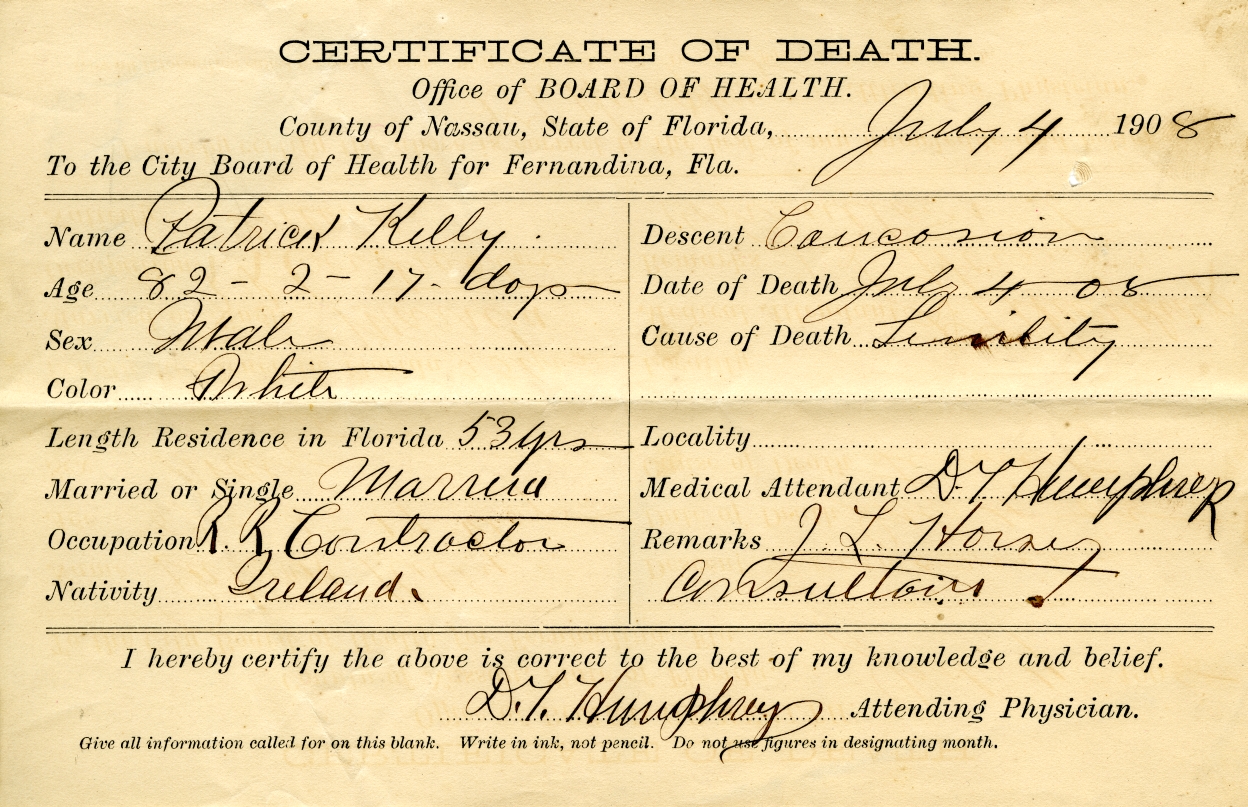 CERTIFICATE OF DEATH.
Office of BOARD OF HEALTH.
County of Nassau, State of Florida, July 4 1908
To the City Board of Health for Fernandina, Fla.
Name Patrick Kelly.
Age 82 - 2 - 17 - days
Sex Male
Color White
Length Residence in Florida 53 yrs
Married or Single Married
Occupation R. R. Contractor
Nativity Ireland.
Descent Caucasian
Date of Death July 4 - 08
Cause of Death Senility
Locality
Medical Attendant D. T. Humphrey
Remarks J. L. Horsey
I hereby certify the above is correct to the best of my knowledge and belief.
D. T. Humphrey Attending Physician.
Give all information called for on this blank. Write in ink, not pencil. Do not use figures in designating month.